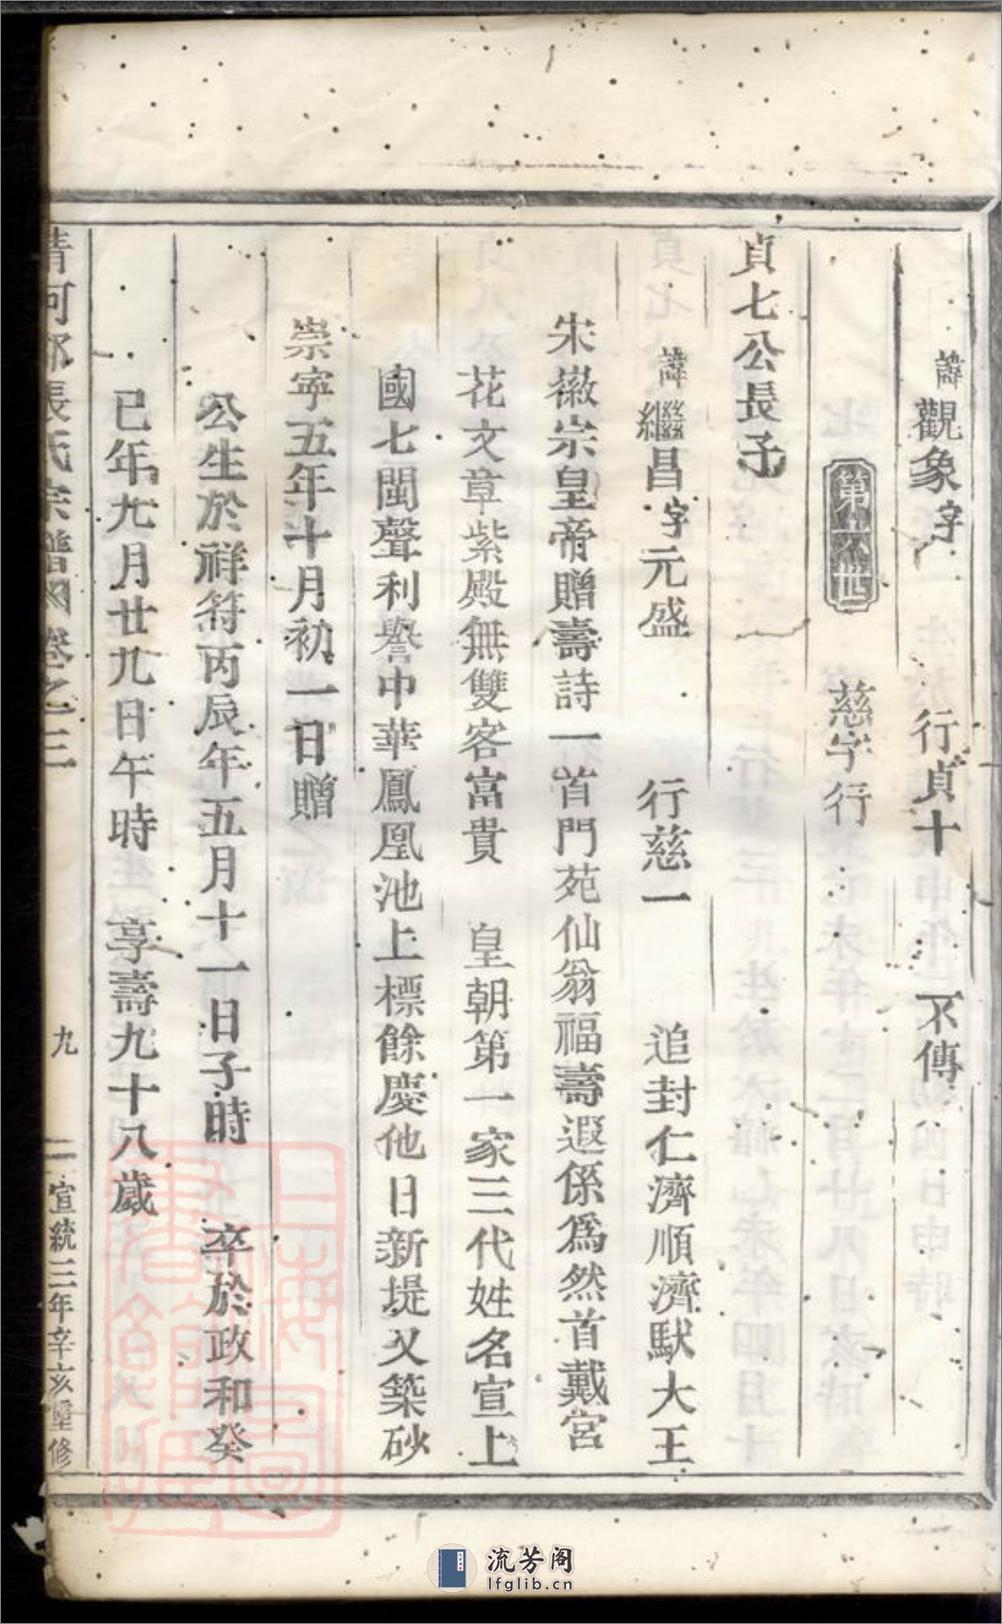 諱觀象字 行貞十 不傳
慈字行
貞七公長子
諱繼昌字元盛 行慈一 追封仁濟順濟馱大王
宋徽宗皇帝贈壽詩一首門苑仙翁福壽遐係爲然首戴宮
花文章紫殿無雙客富貴 皇朝第一家三代姓名宣上
國七閩聲利譽中華鳳凰池上標餘慶他日新堤又築砂
崇寧五年十月初一日贈
公生於祥符丙辰年五月十一日子時 卒於政和癸
巳年九月廿九日午時 享壽九十八歲
清河郡張氏宗譜 卷之三 九 宣統三年辛亥重修
流芳阁
lfglib.cn